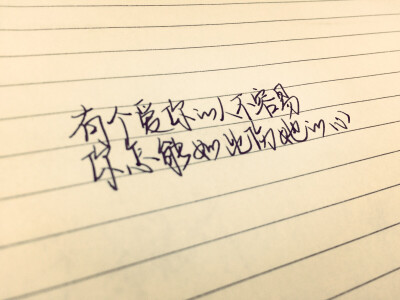 有个爱你的人不容易
你怎能如此伤她的心